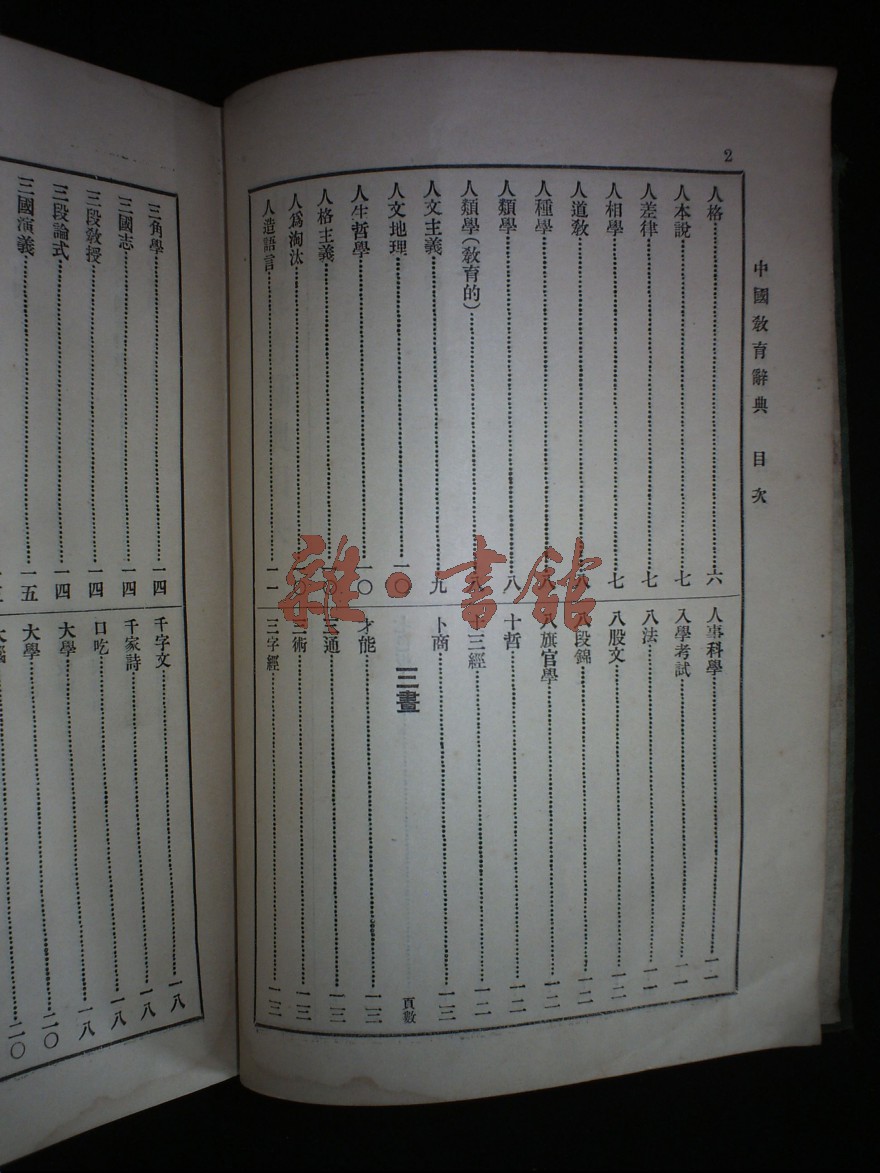 2
中國教育辭典 目次
人格……六
人本說……七
人差律……七
人相學……七
人道教……八
人種學……八
人類學……八
人類學(教育的)……八
人文主義……九
人文地理……一〇
人生哲學……一〇
人格主義……一〇
人爲淘汰……一〇
人造語言……一一
人事科學……一一
入學考試……一一
八法……一一
八股文……一二
八段錦……一二
八旗官學……一二
十哲……一二
十三經……一二
卜商……一三
三畫 頁數
才能……一三
三通……一三
三術……一三
三字經……一三
三角學……一四
三國志……一四
三段教授……一四
三段論式……一四
三國演義……一五
千字文……一八
千家詩……一八
口吃……一八
大學……一八
大學……二〇
二〇
雜·書館